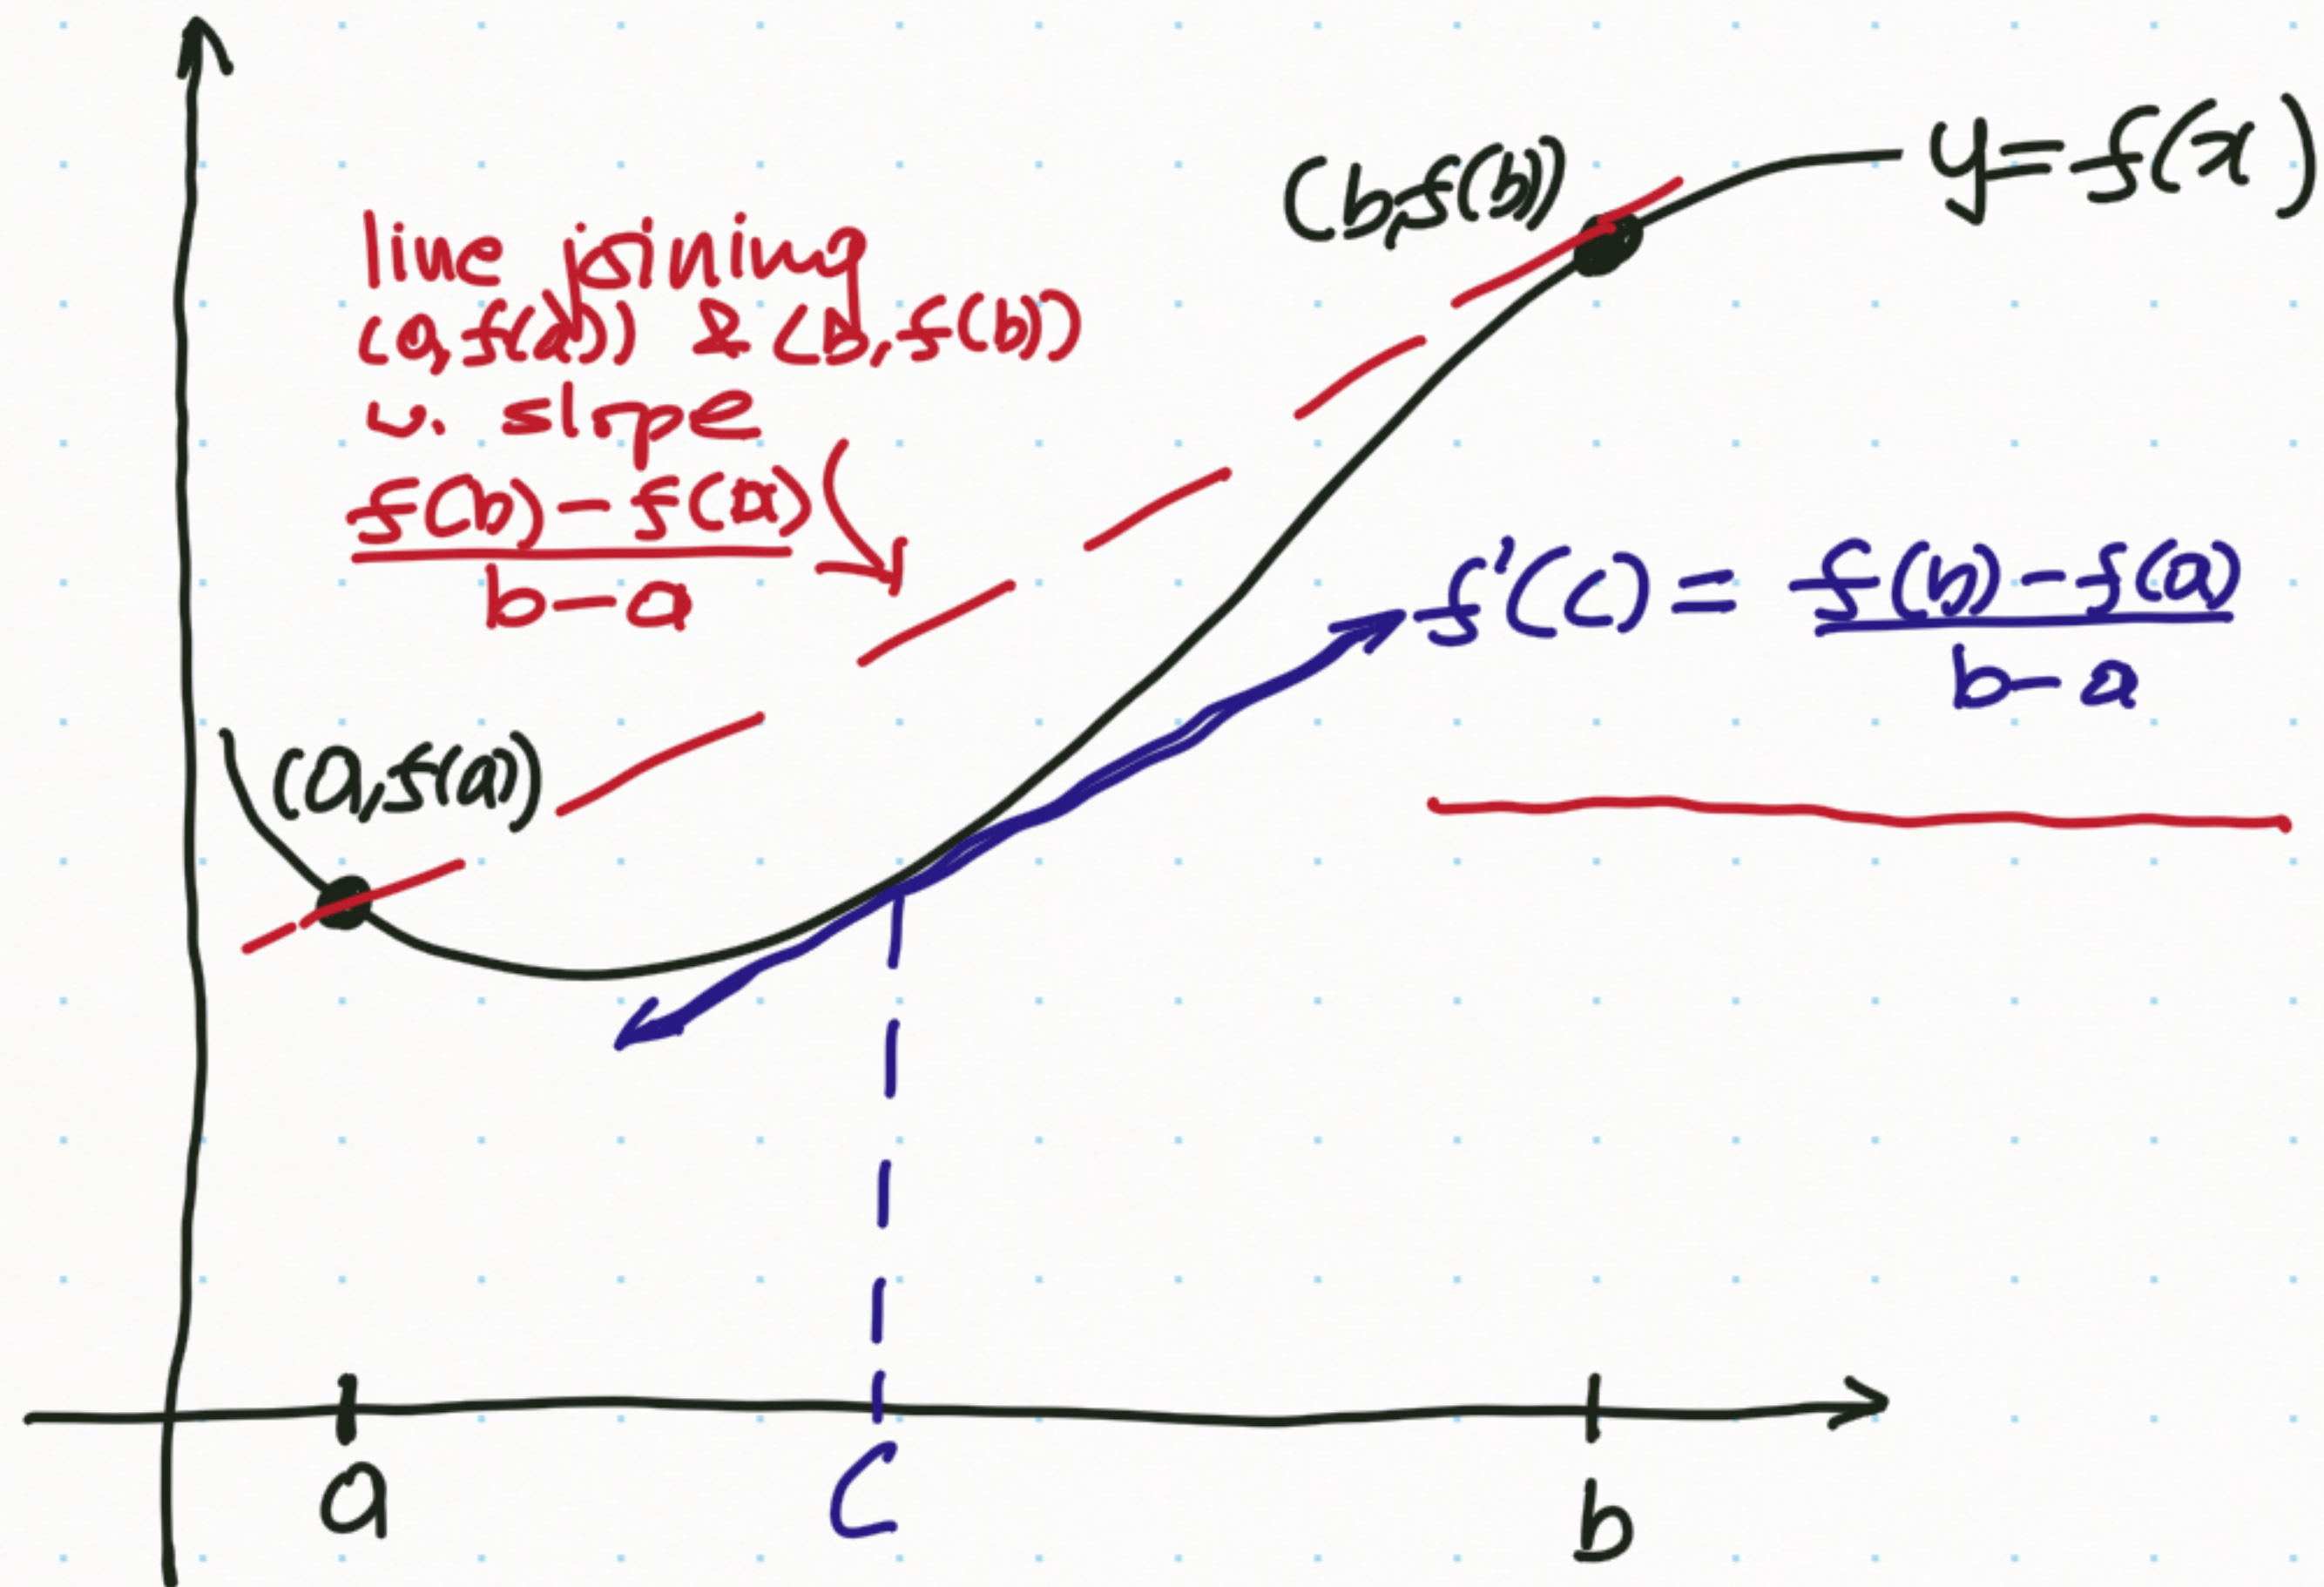 y=f(x)
(b,f(b))
line joining
(a,f(a)) & (b,f(b))
w. slope
f(b)-f(a)
b-a
f'(c) = f(b)-f(a)
b-a
(a,f(a))
a
c
b